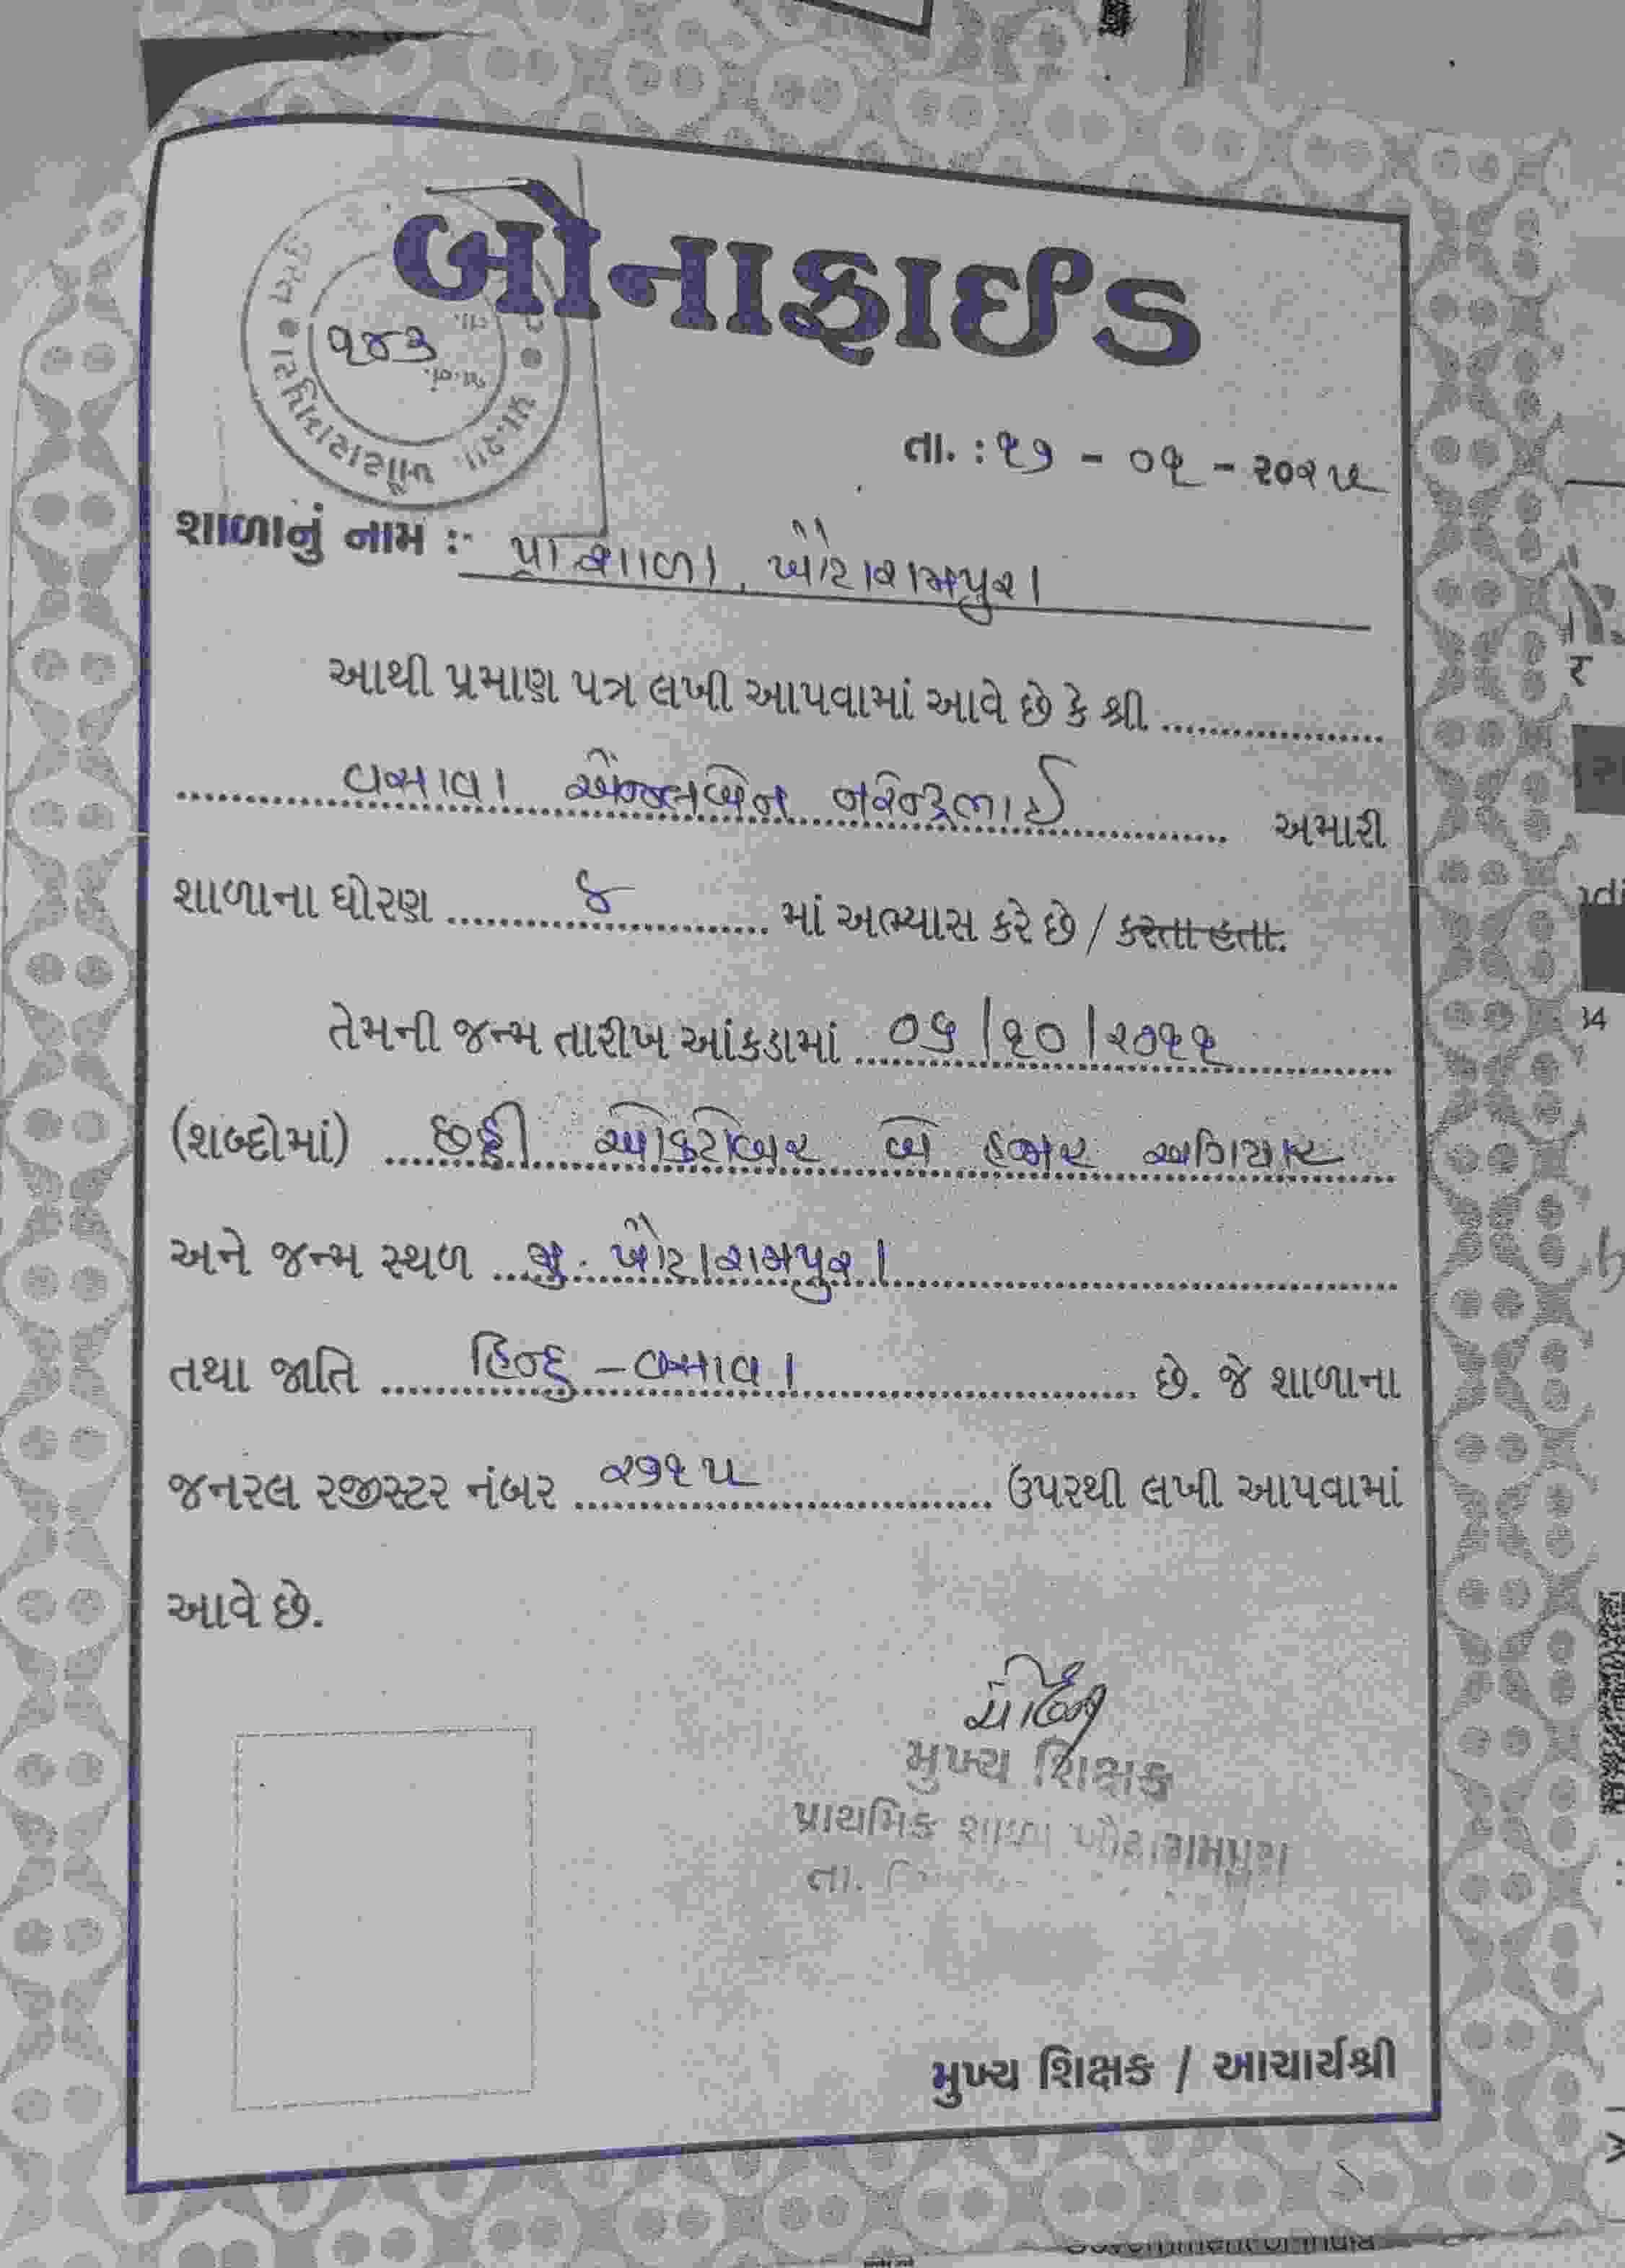 બોનાફાઈડ
૧૪૩
પ્રા.શા. ખૌટારામપુરા
તા. : ૧૭ - ૦૧ - ૨૦૨૫
શાળાનું નામ :- પ્રા શાળા, ખૌટારામપુરા
આથી પ્રમાણ પત્ર લખી આપવામાં આવે છે કે શ્રી
વસાવા એન્જલબેન નરેન્દ્રભાઈ અમારી
શાળાના ધોરણ ૪ માં અભ્યાસ કરે છે / કરતા હતા.
તેમની જન્મ તારીખ આંકડામાં ૦૬/૧૦/૨૦૧૧
(શબ્દોમાં) છઠ્ઠી ઓક્ટોબર બે હજાર અગિયાર
અને જન્મ સ્થળ મુ. ખૌટારામપુરા
તથા જાતિ હિન્દુ - વસાવા છે. જે શાળાના
જનરલ રજીસ્ટર નંબર ૨૭૧૫ ઉપરથી લખી આપવામાં
આવે છે.
મુખ્ય શિક્ષક
પ્રાથમિક શાળા ખૌટારામપુરા
તા.
મુખ્ય શિક્ષક / આચાર્યશ્રી